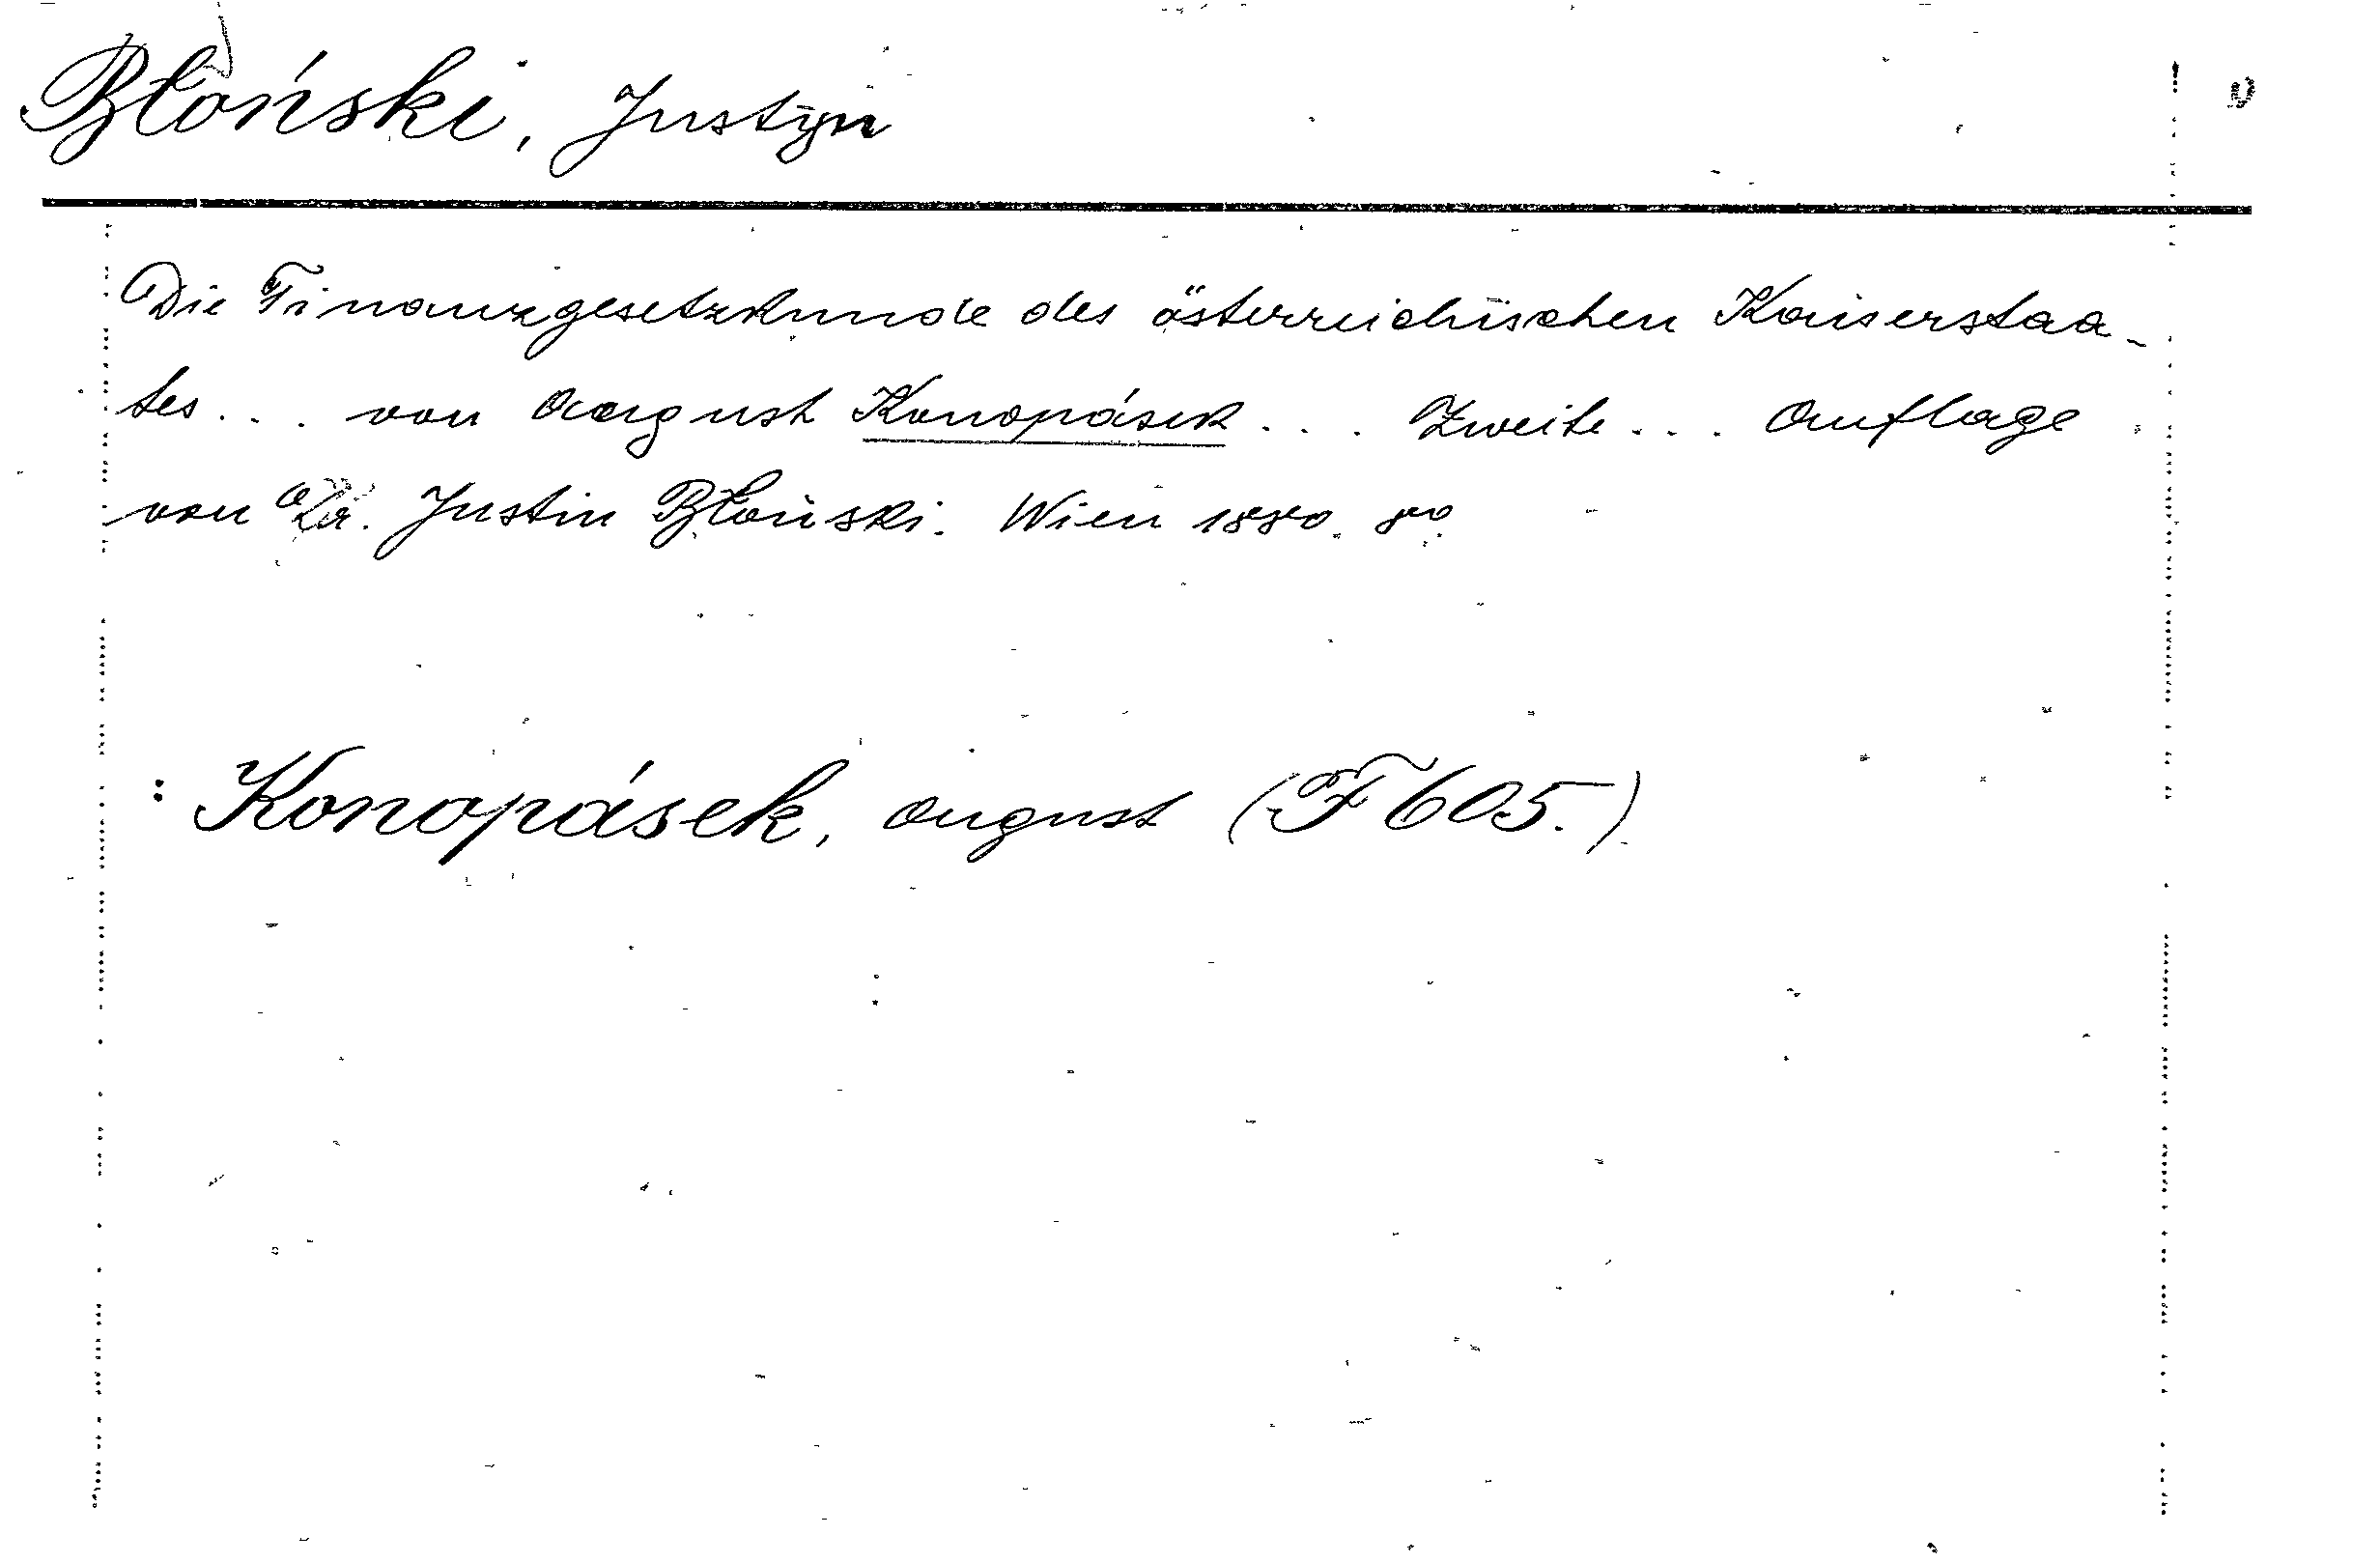 Błoński, Justyn
Die Finanzgesetzkunde des österreichischen Kaiserstaa-
tes... von August Konopásek... Zweite... Auflage
von Dr. Justin Błoński. Wien 1880. 8vo
: Konopásek, August (F 605.)